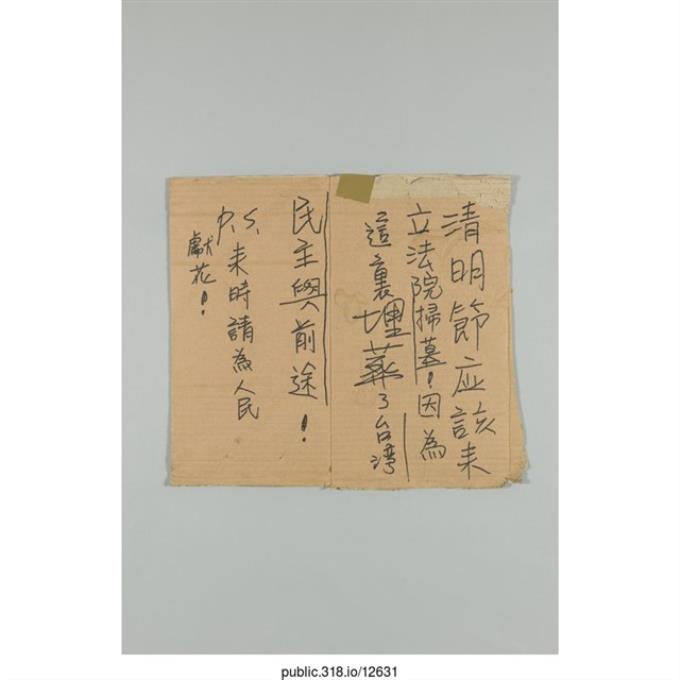 清明節应該来
立法院掃墓！因為
這裏埋葬了台湾
民主與前途！
P.S.来時請為人民
獻花！
public.318.io/12631